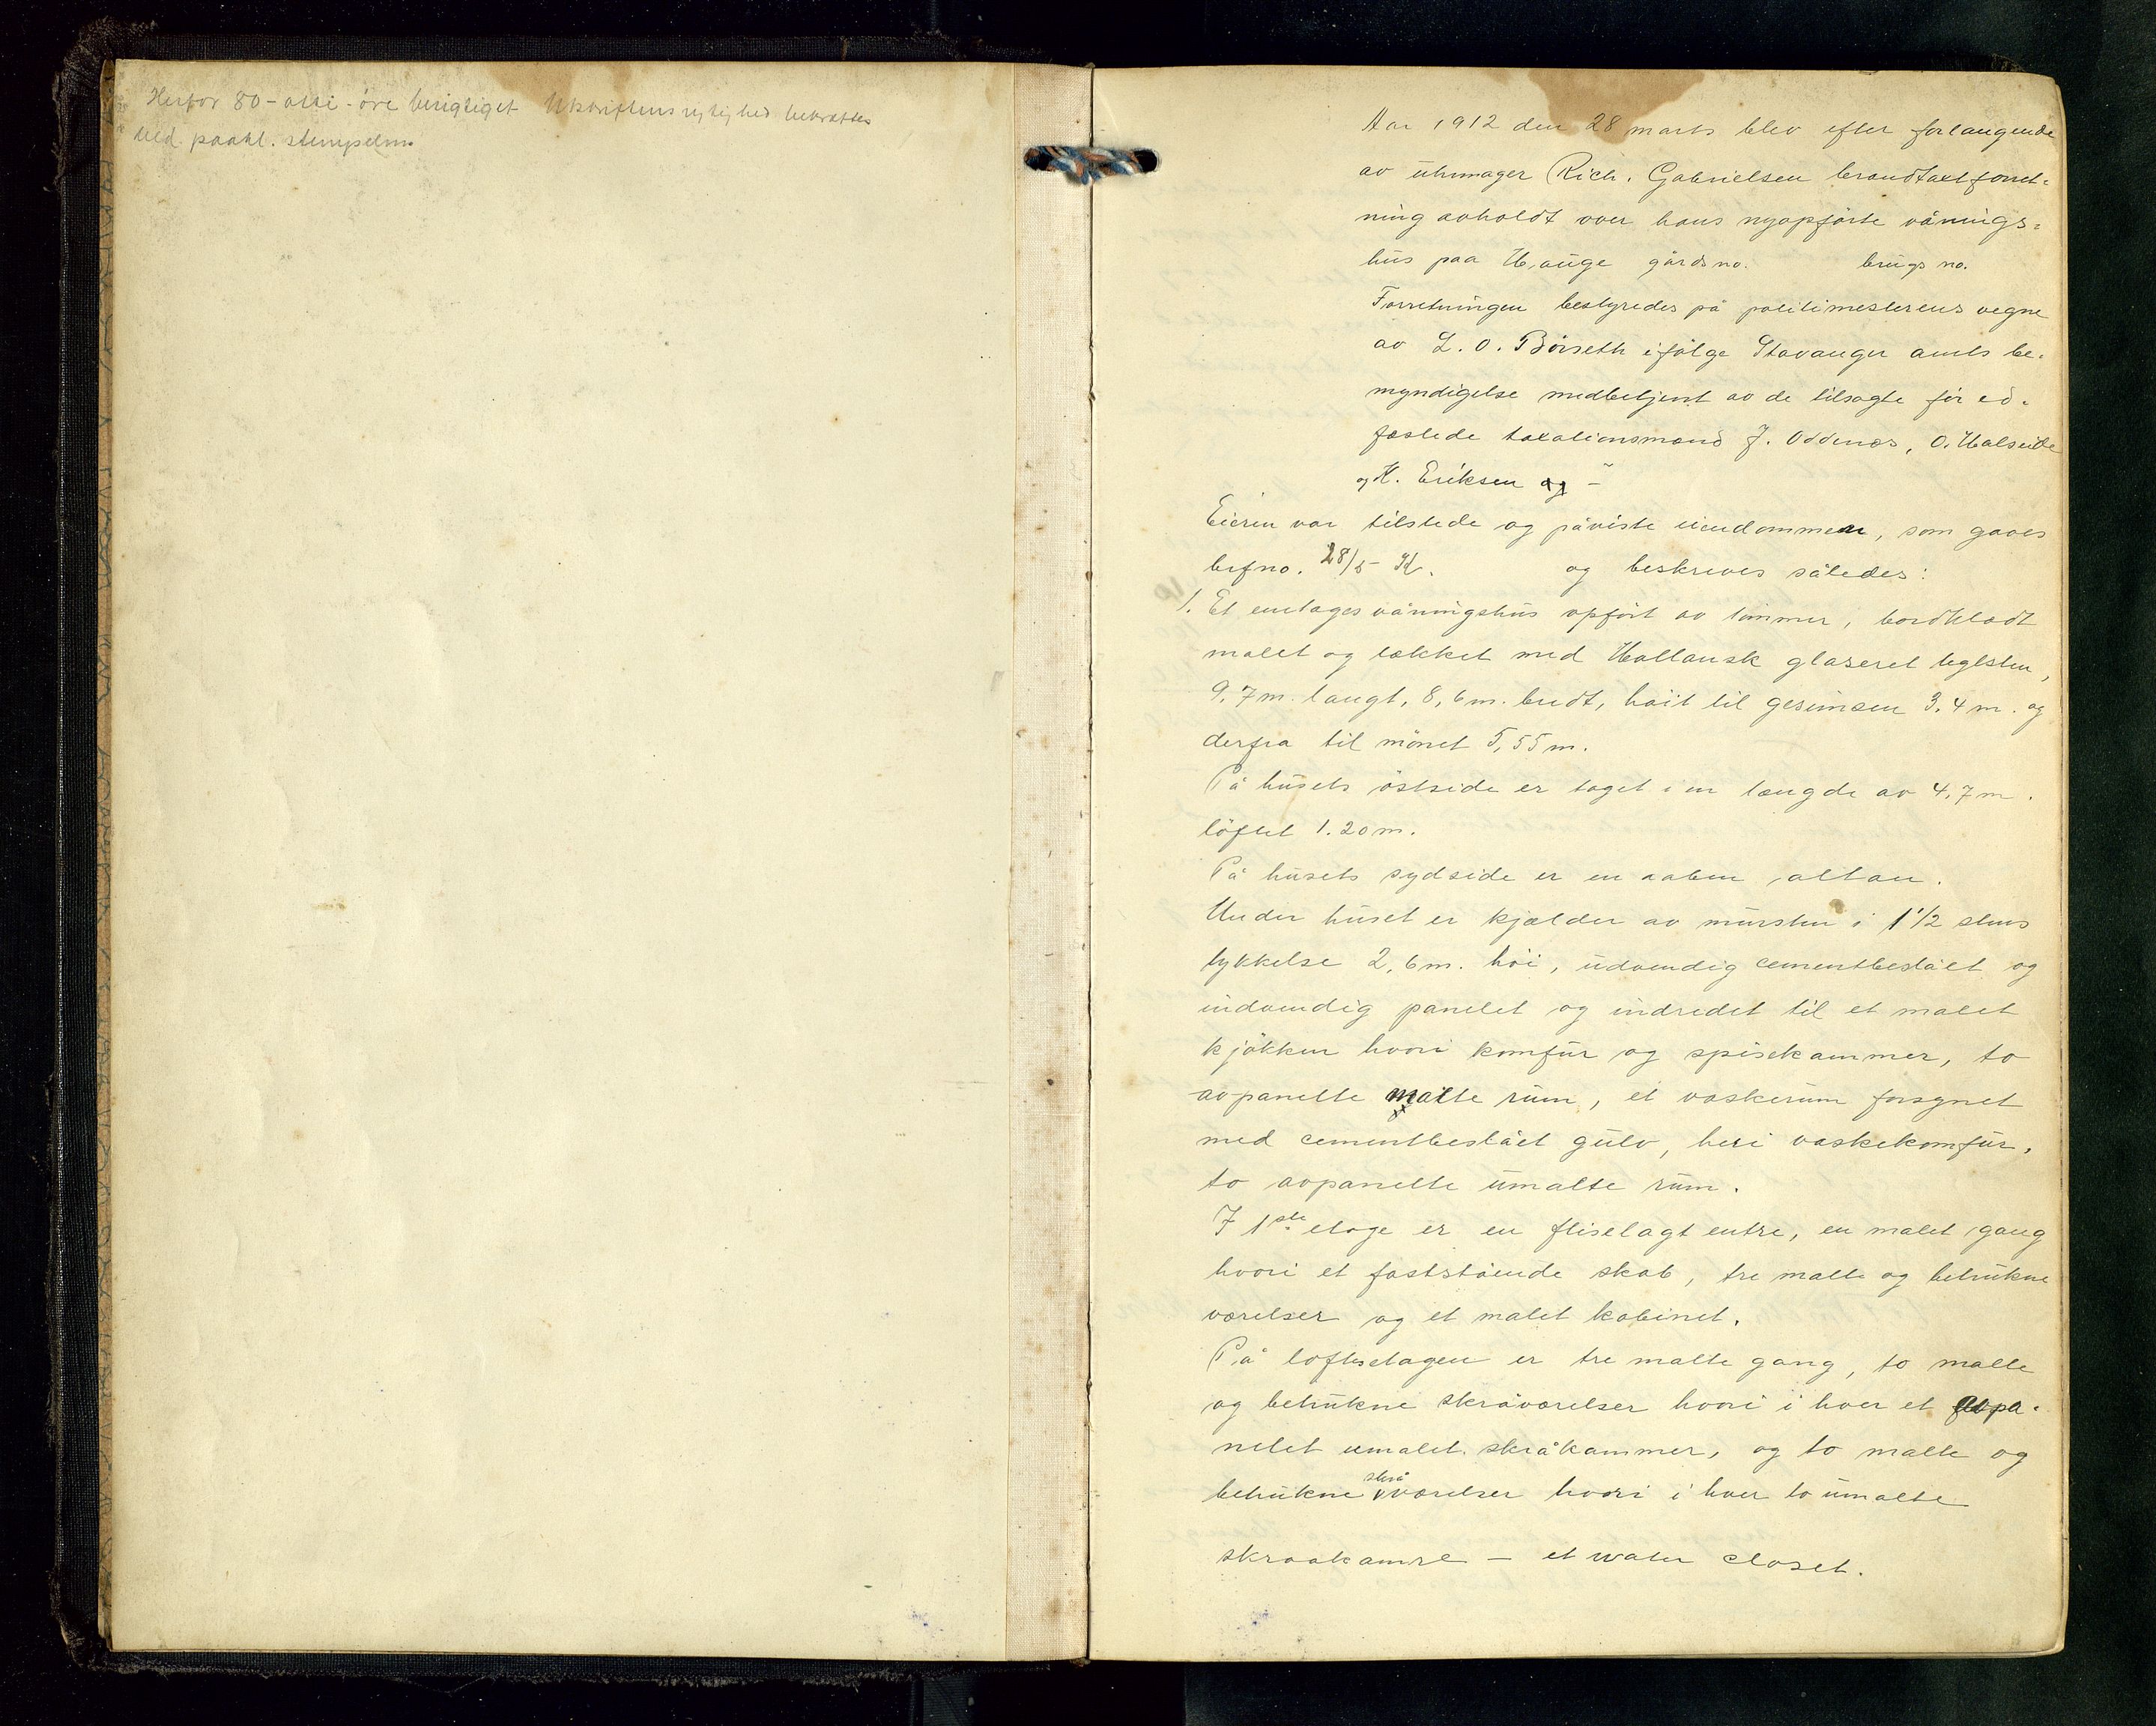 Herfor 80 - otti - öre berigtiget Utskriftens rigtighed bekræftes
Uld. paakl. stempelm.
Aar 1912 den 28 marts blev efter forlangende
av uhrmager Rich. Gabrielsen brandtaxtforret=
ning avholdt over hans nyopförte vånings=
hus paa Hauge gårdsno. brugs no.
Forretningen bestyredes på politimesterens vegne
av L. O. Börseth ifölge Stavanger amts be-
myndigelse medbetjent av de tilsagte för ed-
fæstede taxationsmænd J. Oddenæs, O. Halseide
og H. Eriksen og -
Eieren var tilstede og påviste eiendommen, som gaves
brfno. 28/5 K. og beskreves således:
1. Et enetages våningshus opfört av tömmer, bordklædt
malet og tækket med Hollansk glaseret teglsten,
9,7 m. langt, 8,6 m. bredt, höit til gesimsen 3,4 m. og
derfra til mönet 5,55 m.
På husets östside er taget i en længde av 4,7 m.
löftet 1.20 m.
På husets sydside er en aaben altan.
Under huset er kjælder av mursten i 1 1/2 stens
tykkelse 2,6 m. höi, udvendig cementbeslået og
indvendig panelet og indredet til et malet
kjökken hvori komfur og spisekammer, to
avpanelte malte rum, et vaskerum forsynet
med cementbeslået gulv, heri vaskekomfur,
to avpanelte umalte rum.
I 1ste etage er en fliselagt entre, en malet gang
hvori et faststående skab, tre malte og betrukne
værelser og et malet kabinet.
På loftsetagen er tre malte gang, to malte
og betrukne skråværelser hvori i hver et avpa-
nelet umalet skråkammer, og to malte og
betrukne skrå værelser hvori i hver to umalte
skraakamre - et water closet.